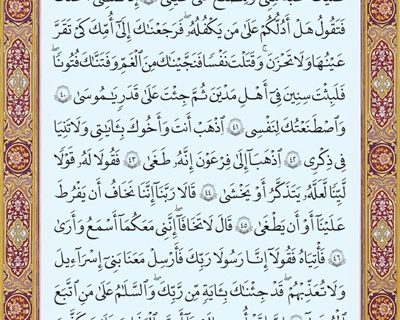 فَتَقُولُ هَلْ أَدُلُّكُمْ عَلَىٰ مَن يَكْفُلُهُۥ ۖ فَرَجَعْنَٰكَ إِلَىٰٓ أُمِّكَ كَىْ تَقَرَّ
عَيْنُهَا وَلَا تَحْزَنَ ۚ وَقَتَلْتَ نَفْسًا فَنَجَّيْنَٰكَ مِنَ ٱلْغَمِّ وَفَتَنَّٰكَ فُتُونًا ۚ
فَلَبِثْتَ سِنِينَ فِىٓ أَهْلِ مَدْيَنَ ثُمَّ جِئْتَ عَلَىٰ قَدَرٍ يَٰمُوسَىٰ ٤٠
وَٱصْطَنَعْتُكَ لِنَفْسِى ٤١ ٱذْهَبْ أَنتَ وَأَخُوكَ بِـَٔايَٰتِى وَلَا تَنِيَا
فِى ذِكْرِى ٤٢ ٱذْهَبَآ إِلَىٰ فِرْعَوْنَ إِنَّهُۥ طَغَىٰ ٤٣ فَقُولَا لَهُۥ قَوْلًا
لَّيِّنًا لَّعَلَّهُۥ يَتَذَكَّرُ أَوْ يَخْشَىٰ ٤٤ قَالَا رَبَّنَآ إِنَّنَا نَخَافُ أَن يَفْرُطَ
عَلَيْنَآ أَوْ أَن يَطْغَىٰ ٤٥ قَالَ لَا تَخَافَآ ۖ إِنَّنِى مَعَكُمَآ أَسْمَعُ وَأَرَىٰ
٤٦ فَأْتِيَاهُ فَقُولَآ إِنَّا رَسُولَا رَبِّكَ فَأَرْسِلْ مَعَنَا بَنِىٓ إِسْرَٰٓءِيلَ
وَلَا تُعَذِّبْهُمْ ۖ قَدْ جِئْنَٰكَ بِـَٔايَةٍ مِّن رَّبِّكَ ۖ وَٱلسَّلَٰمُ عَلَىٰ مَنِ ٱتَّبَعَ